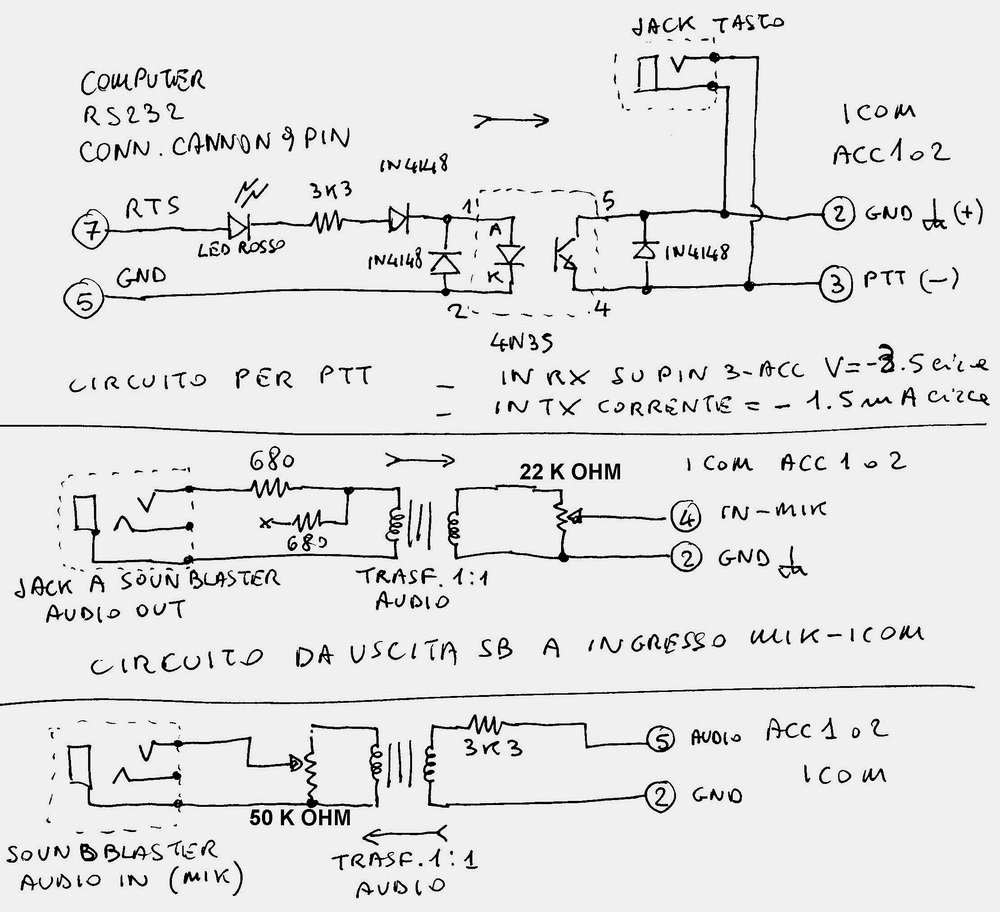 JACK TASTO
COMPUTER
RS232
CONN. CANNON 9 PIN
ICOM
ACC 1 o 2
1N4148
3K3
7 RTS
LED ROSSO
1 A
5
2 GND (+)
1N4148
1N4148
K
5 GND
2
4
3 PTT (-)
4N35
CIRCUITO PER PTT
- IN RX SU PIN 3-ACC V=-8.5 circa
- IN TX CORRENTE = - 1.5 mA circa
680
22 K OHM
ICOM ACC 1 o 2
4 IN-MIK
680
2 GND
JACK A SOUNBLASTER
AUDIO OUT
TRASF. 1:1
AUDIO
CIRCUITO DA USCITA SB A INGRESSO MIK-ICOM
3K3
5 AUDIO ACC 1 o 2
ICOM
2 GND
50 K OHM
SOUNBBLASTER
AUDIO IN (MIK)
TRASF. 1:1
AUDIO